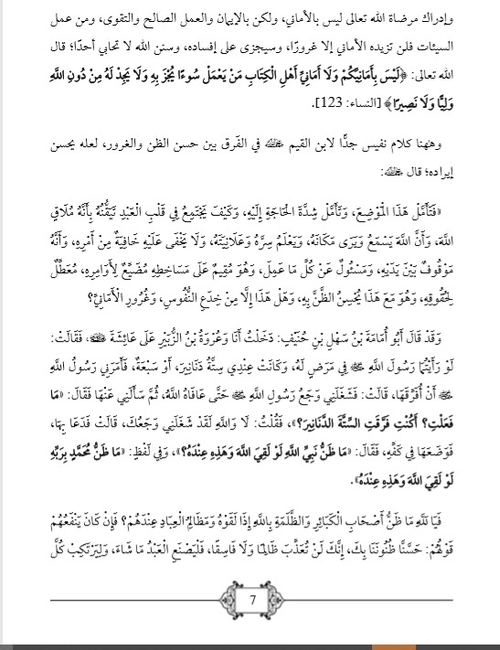 وإدراك مرضاة الله تعالى ليس بالأماني، ولكن بالإيمان والعمل الصالح والتقوى، ومن عمل
السيئات فلن تزيده الأماني إلا غرورًا، وسيجزى على إفساده، وسنن الله لا تحابي أحدًا؛ قال
الله تعالى: ﴿لَيْسَ بِأَمَانِيِّكُمْ وَلَا أَمَانِيِّ أَهْلِ الْكِتَابِ مَنْ يَعْمَلْ سُوءًا يُجْزَ بِهِ وَلَا يَجِدْ لَهُ مِنْ دُونِ اللَّهِ
وَلِيًّا وَلَا نَصِيرًا﴾ [النساء: 123].
وههنا كلام نفيس جدًّا لابن القيم في الفَرق بين حسن الظن والغرور، لعله يحسن
إيراده؛ قال:
«فَتَأَمَّلْ هَذَا الْمَوْضِعَ، وَتَأَمَّلْ شِدَّةَ الْحَاجَةِ إِلَيْهِ، وَكَيْفَ يَجْتَمِعُ فِي قَلْبِ الْعَبْدِ تَيَقُّنُهُ بِأَنَّهُ مُلَاقٍ
اللَّهَ، وَأَنَّ اللَّهَ يَسْمَعُ وَيَرَى مَكَانَهُ، وَيَعْلَمُ سِرَّهُ وَعَلَانِيَتَهُ، وَلَا يَخْفَى عَلَيْهِ خَافِيَةٌ مِنْ أَمْرِهِ، وَأَنَّهُ
مَوْقُوفٌ بَيْنَ يَدَيْهِ، وَمَسْئُولٌ عَنْ كُلِّ مَا عَمِلَ، وَهُوَ مُقِيمٌ عَلَى مَسَاخِطِهِ مُضَيِّعٌ لِأَوَامِرِهِ، مُعَطِّلٌ
لِحُقُوقِهِ، وَهُوَ مَعَ هَذَا يُحْسِنُ الظَّنَّ بِهِ، وَهَلْ هَذَا إِلَّا مِنْ خِدَعِ النُّفُوسِ، وَغُرُورِ الْأَمَانِيِّ؟
وَقَدْ قَالَ أَبُو أُمَامَةَ بْنُ سَهْلِ بْنِ حُنَيْفٍ: دَخَلْتُ أَنَا وَعُرْوَةُ بْنُ الزُّبَيْرِ عَلَى عَائِشَةَ، فَقَالَتْ:
لَوْ رَأَيْتُمَا رَسُولَ اللَّهِ ﷺ فِي مَرَضٍ لَهُ، وَكَانَتْ عِنْدِي سِتَّةُ دَنَانِيرَ، أَوْ سَبْعَةٌ، فَأَمَرَنِي رَسُولُ اللَّهِ
ﷺ أَنْ أُفَرِّقَهَا، قَالَتْ: فَشَغَلَنِي وَجَعُ رَسُولِ اللَّهِ ﷺ حَتَّى عَافَاهُ اللَّهُ، ثُمَّ سَأَلَنِي عَنْهَا فَقَالَ: «مَا
فَعَلْتِ؟ أَكُنْتِ فَرَّقْتِ السِّتَّةَ الدَّنَانِيرَ؟»، فَقُلْتُ: لَا وَاللَّهِ لَقَدْ شَغَلَنِي وَجَعُكَ، قَالَتْ فَدَعَا بِهَا،
فَوَضَعَهَا فِي كَفِّهِ، فَقَالَ: «مَا ظَنُّ نَبِيِّ اللَّهِ لَوْ لَقِيَ اللَّهَ وَهَذِهِ عِنْدَهُ؟»، وَفِي لَفْظٍ: «مَا ظَنُّ مُحَمَّدٍ بِرَبِّهِ
لَوْ لَقِيَ اللَّهَ وَهَذِهِ عِنْدَهُ».
فَيَا لَلَّهِ مَا ظَنُّ أَصْحَابِ الْكَبَائِرِ وَالظَّلَمَةِ بِاللَّهِ إِذَا لَقَوْهُ وَمَظَالِمُ الْعِبَادِ عِنْدَهُمْ؟ فَإِنْ كَانَ يَنْفَعُهُمْ
قَوْلُهُمْ: حَسَّنَّا ظُنُونَنَا بِكَ، إِنَّكَ لَنْ تُعَذِّبَ ظَالِمًا وَلَا فَاسِقًا، فَلْيَصْنَعِ الْعَبْدُ مَا شَاءَ، وَلْيَرْتَكِبْ كُلَّ
7